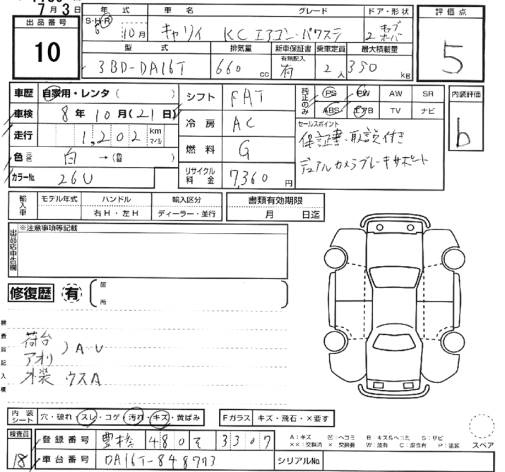 7月3日
出品番号 10
年式 車名 グレード ドア・形状 評価点
S・H・R 6 10月 キャリィ KCエアコン・パワステ 2 キャブオーバー 5
型式 排気量 新車保証書 乗車定員 最大積載量
3BD-DA16T 660 cc 有無記入 有 2人 350 kg
車歴 自家用・レンタ( ) シフト FAT 純正のみ PS PW AW SR 内装評価
車検 8年10月(21日) ABS エアB TV ナビ b
走行 1,202 km マイル 冷房 AC セールスポイント
保証書・取説付き
色 白→(替 ) 燃料 G デュアルカメラブレーキサポート
カラーNo. 26U リサイクル料金 7,360円
輸入車 モデル年式 ハンドル 輸入区分 書類有効期限
右H・左H ディーラー・並行 月 日迄
※注意事項等記載
修復歴 有 箇所
荷台
アオリ )AU
外装 ウスA
内装シート 穴・破れ スレ・コゲ 汚れ・キズ・黄ばみ Fガラス キズ・飛石・×要す
検査員 18
登録番号 豊橋 480 そ 3307
車台番号 DA16T-848773 シリアルNo.
A:キズ U:ヘコミ B:キズ&ヘコミ S:サビ
スペア